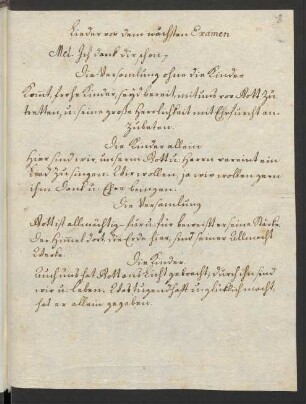 Lieder vor dem nächsten Examen
Mel. Ich dank dir schon,
Die Versamlung ohne die Kinder
Komt, frohe Kinder, seyd bereit mit uns vor Gott zu
tretten, u. seine große Herrlichkeit mit Ehrfurcht an-
zubeten.
Die Kinder allein
Hier sind wir, unserm Gott u. Herrn vereint ein
Lied zu singen. Wir wollen, ja wir wollen gern
ihm Dank u. Ehre bringen.
Die Versamlung
Gott ist allmächtig für u. für beweist er seine Stärke.
Der Himmel dort, die Erde hier, sind seiner Allmacht
Werke.
Die Kinder.
Auch uns hat Gott ans Licht gebracht, durch ihn sind
wir u. leben. Was tugendhaft u. glücklich macht,
hat er allein gegeben.